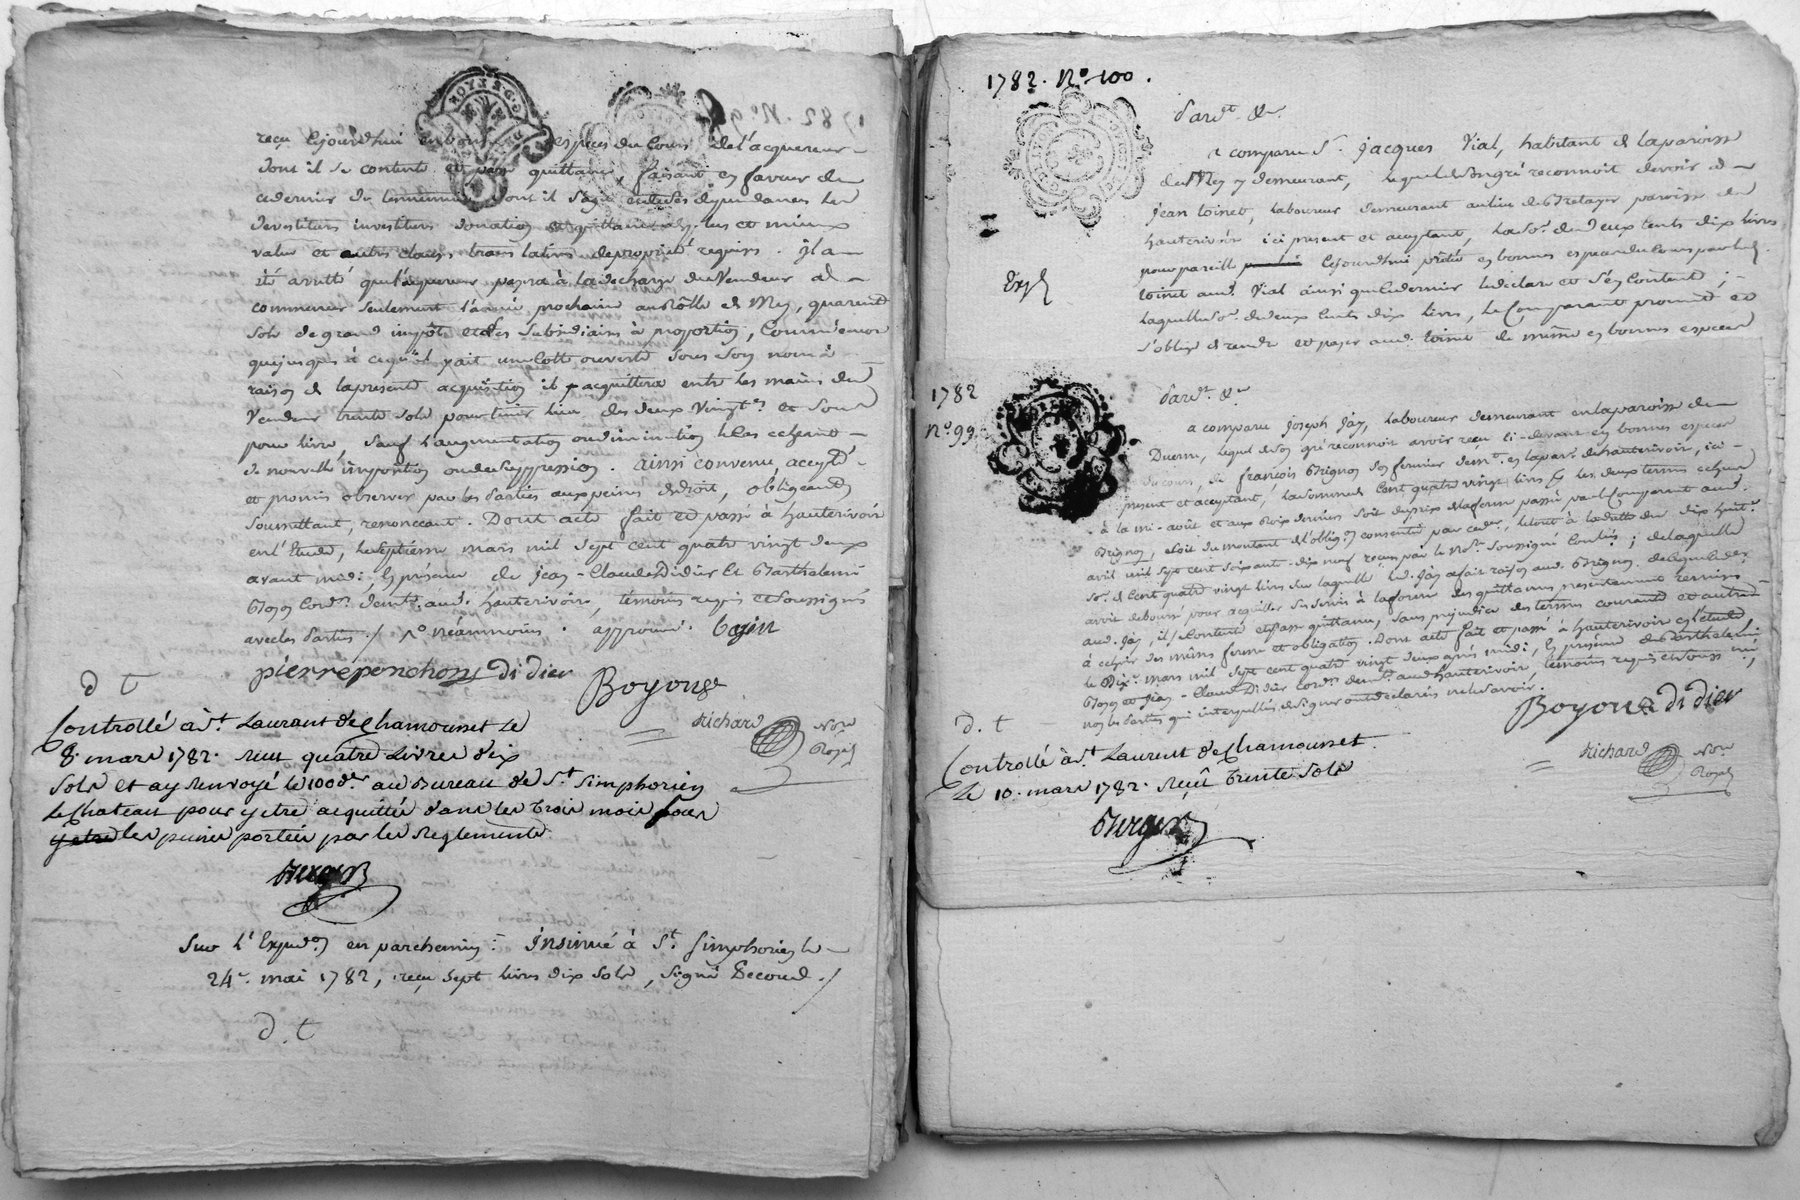 reçu cejourd'hui en bonnes espèces du cours de l'acquereur
dont il se contente et passe quittance, faisant en faveur de
ce dernier du tennement dont il s'agit
devestitures investitures donation et mieux
value et autres clauses translatives de propriété requises. Il a
été arretté que l'acquereur payera à la decharge du Vendeur à
commencer seulement l'année prochaine au rôlle de Mey, quarente
sols de grand impôt et des subsidiaires à proportion, comm'encor
que jusques à ce qu'il y ait une cotte ouverte sous son nom à
raison de la presente acquisition il acquittera entre les mains du
Vendeur trente sols pour tenir lieu des deux Vingt.es et sous
pour livre, sauf l'augmentation ou diminution le cas echeant
de nouvelle imposition ou de suppression. ainsi convenu, accepté
et promis observer par les parties aux peines de droit, obligeant
soumettant, renonceant. Dont acte fait et passé à hauterivoire
en l'Etude, le septieme mars mil sept cent quatre vingt deux
avant midi, en présence de jean-Claude Didier Et Barthelemi
Boyon Cord.rs dem.ts aud. hauterivoire, témoins requis et soussignés
avec les parties. / neanmoins. approuvé.
pierre ponchon Didier Boyon
d t
Richard No.re Royal
Controllé à S.t Laurent de Chamousset le
8. mars 1782. reçu quatre Livres dix
sols et ay renvoyé le 100.e der au Bureau de S.t Simphorien
le Chateau pour y etre acquittée dans les trois mois sous
y etre les peines portées par les Reglements
Sur l'Expéd.on en parchemin: Insinué à S.t Simphorien le
24.e mai 1782, reçu sept livres dix sols, signé Second. /
d. t
1782. N.o 100.
Pard.t &.
a comparu S. jacques Vial, habitant de la paroisse
de Mey y demeurant, lequel de son gré reconnoit devoir à
jean toinet, laboureur demeurant au lieu de Bretager paroisse de
hauterivoire ici present et acceptant, la so.e de deux cents dix livres
pour pareille cejourd'hui prêtée en bonnes espèces du cours par led.
toinet aud. Vial ainsi que ce dernier le declare et s'en contente;
laquelle so.e de deux cents dix livres, le Comparant promet et
s'oblige de rendre et payer aud. toinet de même en bonnes especes
Exp.
1782
N.o 99.
Pard.t &
a comparu joseph jay, laboureur demeurant en la paroisse de
Duerne, lequel de son gré reconnoit avoir reçu ci-devant en bonnes especes
du cours, de françois Brignon son fermier dem.t en la par.e de hauterivoire, ici
present et acceptant, la somme de Cent quatre vingt livres pour les deux termes echeus
à la mi-août et aux Rois derniers soit du prix de la ferme passée par le Comparant aud.
Brignon, et soit du montant de l'oblig.on consentie par ce der., le tout à la datte du dix huit
avril mil sept cent soixant-dix neuf reçus par le No.re soussigné Contlés; de laquelle
so.e de cent quatre vingt livres sur laquelle led. jay a fait raison aud. Brignon de ce que led.
avoit deboursé pour acquitter ses servis à la forme des quittances presentement remises
aud. jay, il se contente et passe quittance, sans prejudice des termes courants et autres
à echeoir des mêmes ferme et obligation. Dont acte fait et passé à hauterivoire en l'etude
le Dix.e mars mil sept cent quatre vingt deux après midi, en présence de Barthelemi
Boyon et jean-Claude Didier Cord.rs dem.ts aud. hauterivoire témoins requis et soussignés,
non les parties qui interpellées de signer ont declaré ne le savoir.
Boyon Didier
d. t
Richard No.re Royal
Controllé à S.t Laurent de Chamousset
Le 10. mars 1782. Reçû trente sols